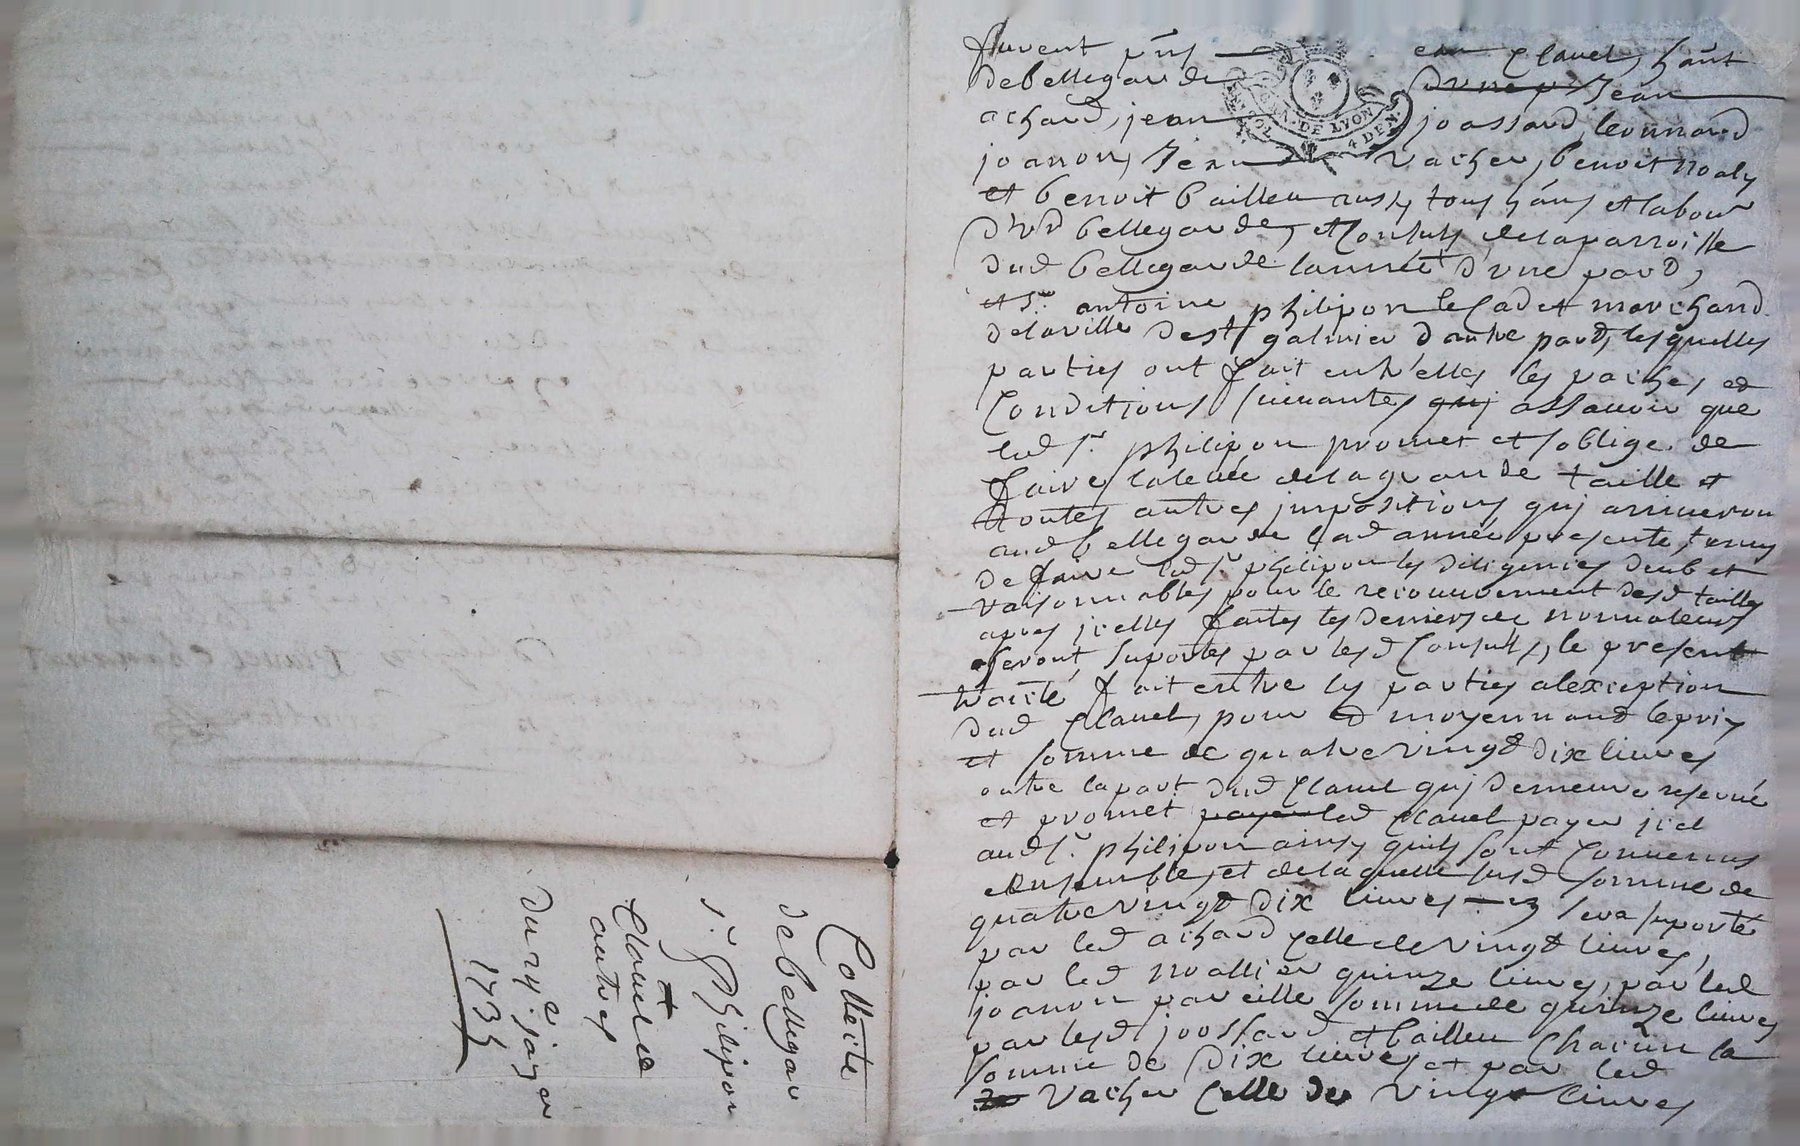 furent pñs ean Clauel, hãnt
de bellegarde d'une p̃ Jean
achard, jean joassard, leonnard
joanon, Jean Vacher, benoit noaly
et benoit bailleu aussy tous hãns et labour
d'ud bellegarde, et Consuls de la parroisse
dud bellegarde lannée d'une pard,
et Sr antoine philipon le Cadet marchand
de la ville de St galmier d'autre pard, lesquelles
parties ont fait entr'elles les paches et
Conditions suiuantes quj assauoir que
led Sr philipon promet et soblige de
faire la leuée de la grande taille et
toutes autres jmpositions quj arriueron
aud bellegarde lad année presente,
de faire led Sr philipon les diligences deub et
raisonnables pour le recouurement desd tailles
apres jcelles faites les deniers
seront suportés par lesd Consuls, le present
traicté fait entre les parties alexception
dud Clauel, pour et moyennand le prix
et somme de quatre vingt dix liures
outre la part dud Clauel quj demeure reserué
et promet payer led Clauel payer jcel
aud Sr philipon ainsy quils sont Conuenus
ensemble, et de laquelle susd somme de
quatre vingt dix liures sera suporté
par led achard Celle de vingt liures,
par led noallier quinze liures, par led
joanon pareille somme de quinze liures
par lesd joossard et bailleu Chacun la
somme de dix liures et par led
Vacher Celle de vingt liures
GEN. DE LYON
4 DEN.
Collecte
de bellegar
Sr Philipon
et
Clauel et
autres
Du 24e jayer
1735